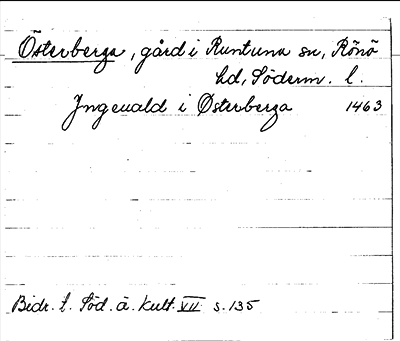 Österberga, gård i Runtuna sn, Rönö
hd, Söderm. l.
Ingeuald i Østerberga 1463
Bidr. t. Söd. ä. kult. VII s. 135